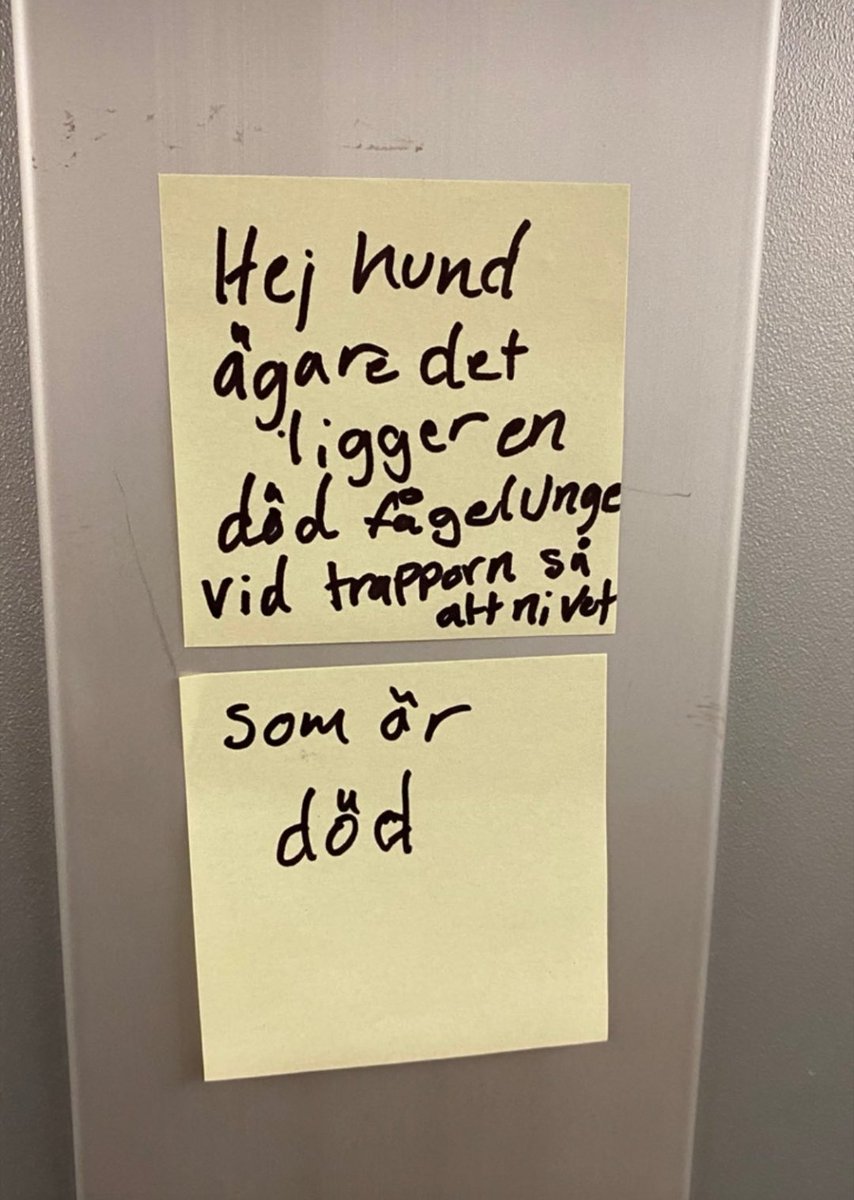 Hej hund
ägare det
ligger en
död fågelunge
vid trapporn så
att ni vet
som är
död